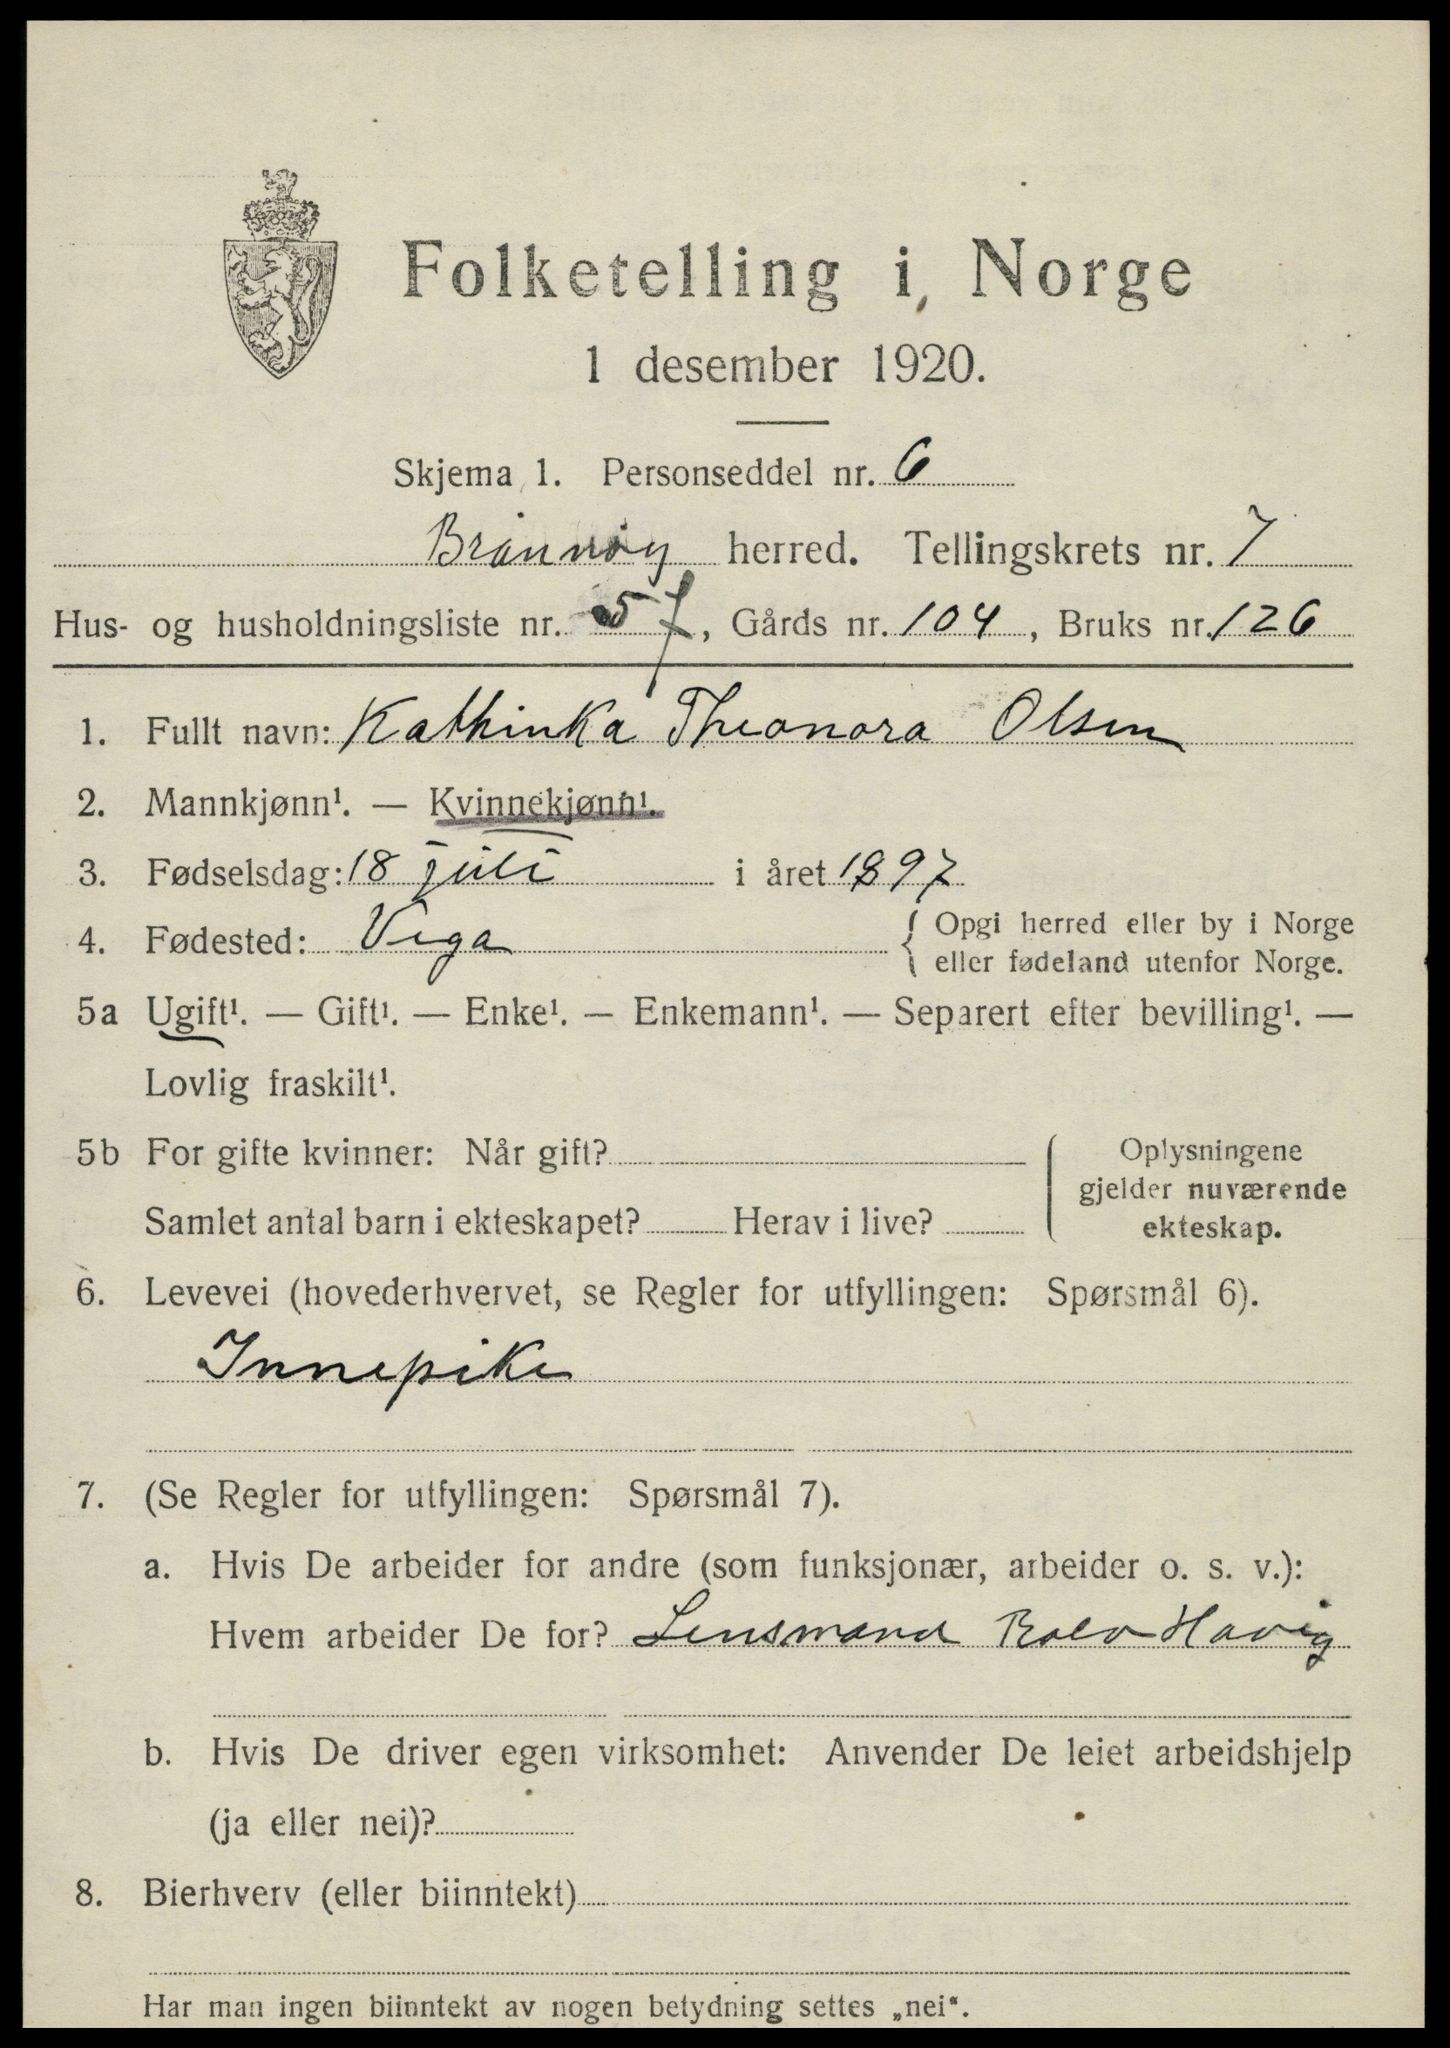 Folketelling i Norge
1 desember 1920.
Skjema 1. Personseddel nr. 6
Brønnøy herred. Tellingskrets nr. 7
Hus- og husholdningsliste nr. 57, Gårds nr. 104, Bruks nr. 126
1. Fullt navn: Kathinka Theonora Olsen
2. Mannkjønn¹. — Kvinnekjønn¹.
3. Fødselsdag: 18 juli i året 1897
4. Fødested: Vega { Opgi herred eller by i Norge
eller fødeland utenfor Norge.
5a Ugift¹. — Gift¹. — Enke¹. — Enkemann¹. — Separert efter bevilling¹. —
Lovlig fraskilt¹.
5b For gifte kvinner: Når gift?
Samlet antal barn i ekteskapet? Herav i live?
Oplysningene
gjelder nuværende
ekteskap.
6. Levevei (hovederhvervet, se Regler for utfyllingen: Spørsmål 6).
Innepike
7. (Se Regler for utfyllingen: Spørsmål 7).
a. Hvis De arbeider for andre (som funksjonær, arbeider o. s. v.):
Hvem arbeider De for? Lensmand Rolv Havig
b. Hvis De driver egen virksomhet: Anvender De leiet arbeidshjelp
(ja eller nei)?
8. Bierhverv (eller biinntekt)
Har man ingen biinntekt av nogen betydning settes „nei“.